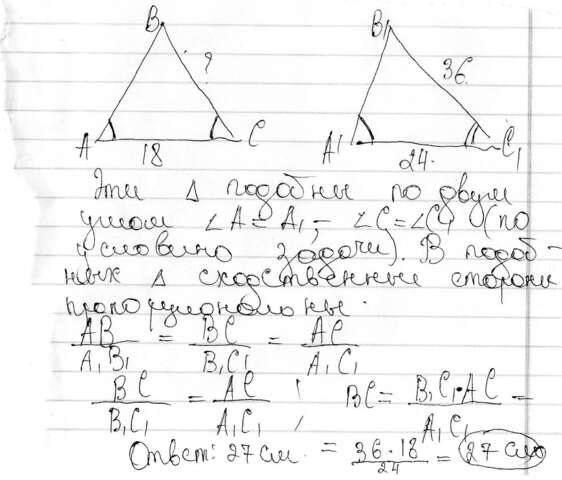 B B1
? 36
A C A1 C1
18 24.
Эти Δ подобны по двум
углам ∠A = A1, ∠C = ∠C1 (по
условию задачи). В подоб-
ных Δ сходственные стороны
пропорциональны.
AB/A1B1 = BC/B1C1 = AC/A1C1
BC/B1C1 = AC/A1C1, BC = B1C1·AC/A1C1 =
Ответ: 27 см. = 36·18/24 = 27 см